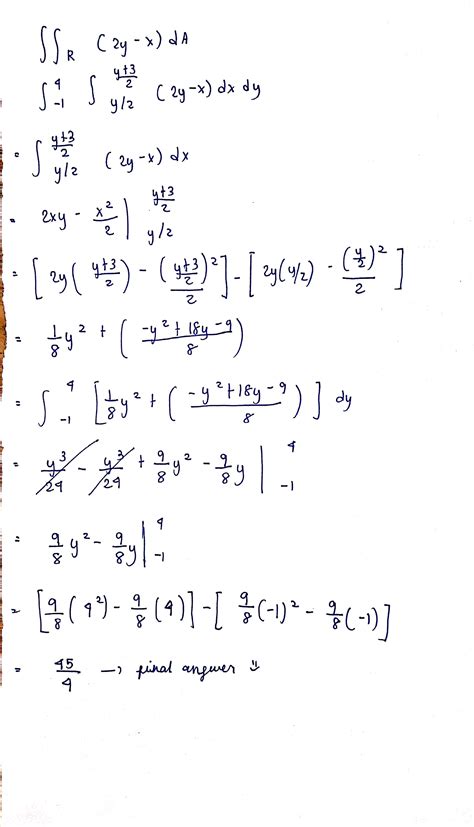 ∬_R (2y-x) dA
∫_{-1}^{4} ∫_{y/2}^{\frac{y+3}{2}} (2y-x) dx dy
= ∫_{y/2}^{\frac{y+3}{2}} (2y-x) dx
= 2xy - \frac{x^2}{2} |_{y/2}^{\frac{y+3}{2}}
= [2y(\frac{y+3}{2}) - \frac{(\frac{y+3}{2})^2}{2}] - [2y(y/2) - \frac{(\frac{y}{2})^2}{2}]
= \frac{1}{8}y^2 + (\frac{-y^2+18y-9}{8})
= ∫_{-1}^{4} [\frac{1}{8}y^2 + (\frac{-y^2+18y-9}{8})] dy
= \frac{y^3}{24} - \frac{y^3}{24} + \frac{9}{8}y^2 - \frac{9}{8}y |_{-1}^{4}
= \frac{9}{8}y^2 - \frac{9}{8}y |_{-1}^{4}
= [\frac{9}{8}(4^2) - \frac{9}{8}(4)] - [\frac{9}{8}(-1)^2 - \frac{9}{8}(-1)]
= \frac{45}{4} → final answer